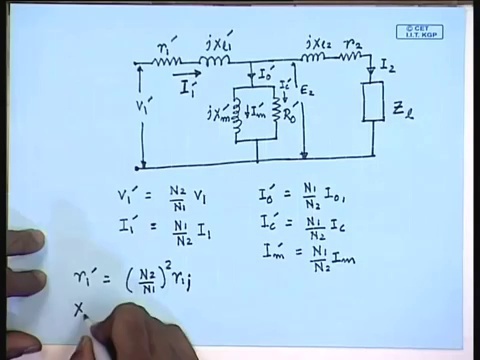 © CET
I.I.T. KGP
r₁′ jxl₁′ jxl₂ r₂
I₁′ I₀′ I₂
V₁′ jxm′ Im′ Ic′ R₀′ E₂ Zl
V₁′ = N₂/N₁ V₁ I₀′ = N₁/N₂ I₀,
I₁′ = N₁/N₂ I₁ Ic′ = N₁/N₂ Ic
Im′ = N₁/N₂ Im
r₁′ = (N₂/N₁)² r₁;
X